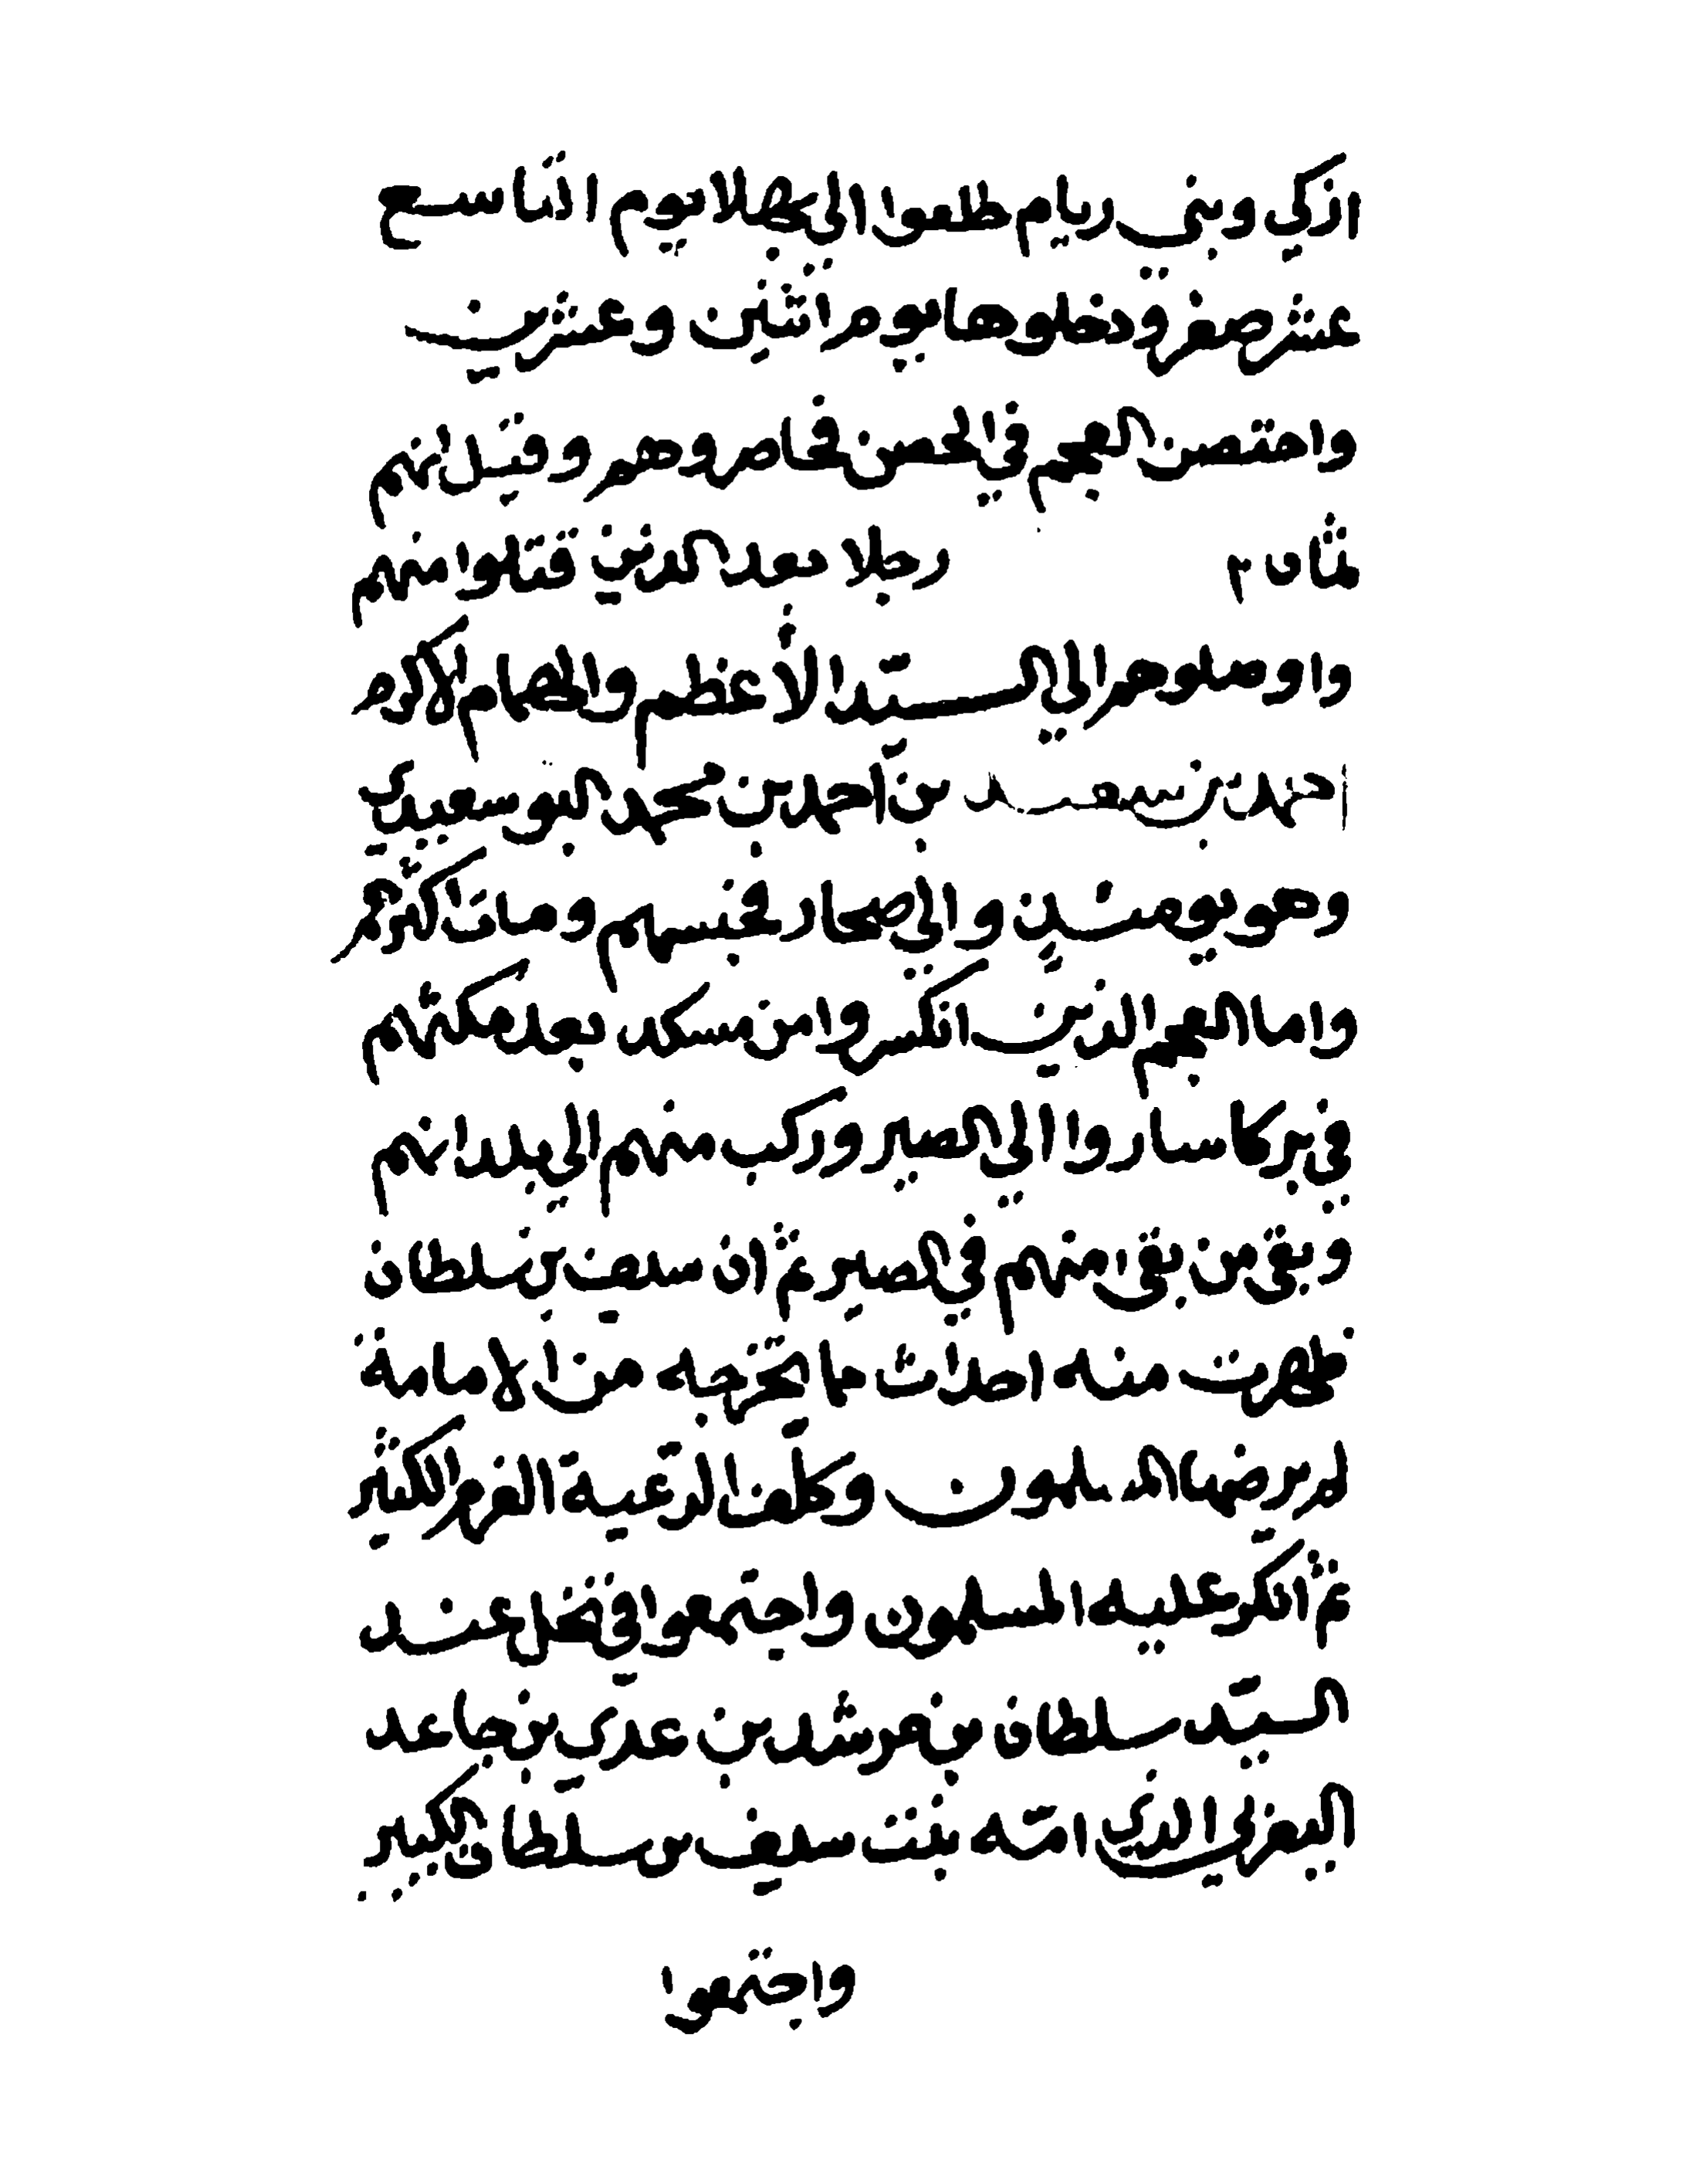 ازكي وبني ريام طلعوا الى بهلا يوم التاسع
عشر صفر ودخلوها يوم اثنين وعشرين
واحتصن العجم في الحصن فحاصروهم وقتل منهم
ثمان رجلا بعد الذين قتلوا منهم
واوصلوهم الي السيّد الأعظم والهمام الاكرم
احمد بن سعيد بن أحمد بن محمد البوسعيدي
وهو يومئذٍ والي صحار فحبسهم ومات اكثرهم
واما العجم الذين انكسروا من مسكد بعد مكثهم
في بركا ساروا الي الصير وركب منهم الي بلدانهم
وبقي من بقي منهم في الصير ثم ان سيف بن سلطان
ظهرت منه احداث مما تخرجه من الامامة
لم يرضها المسلمون وكلّف الرعية الغرم الكثير
ثم انكر عليه المسلمون واجتمعوا في فضل عند
السيّد سلطان بن مرشد بن عدي بن جاعد
اليعربي الذي امّه بنت سيف بن سلطان الكبير
واجتمعوا